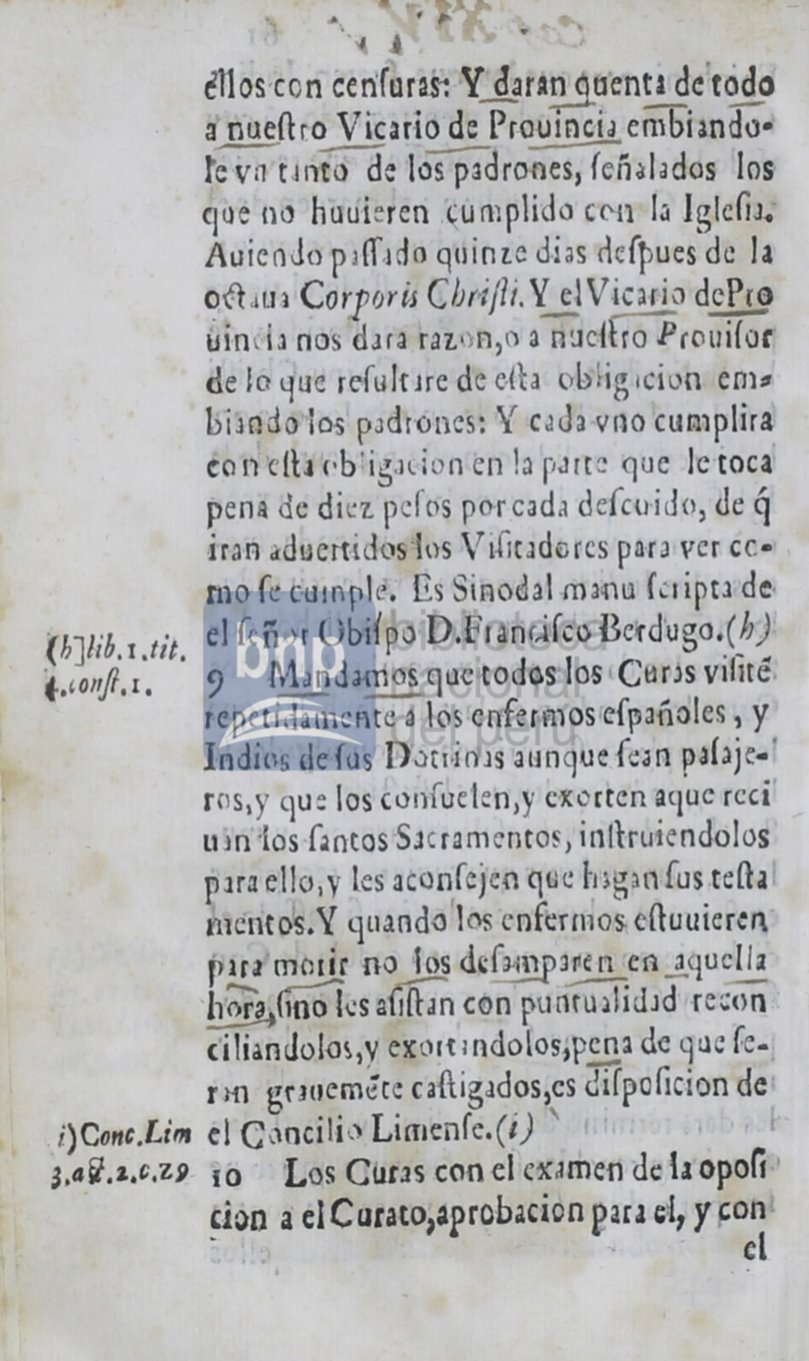 ellos con cenſuras: Y daran quenta de todo
a nueſtro Vicario de Prouincia embiando-
le vn tanto de los padrones, ſeñalados los
que no huuieren cumplido con la Igleſia.
Auiendo paſſado quinze dias deſpues de la
octaua Corporis Chriſti. Y el Vicario de Pro
uincia nos dara razon, o a nueſtro Prouiſor
de lo que reſultare de eſta obligacion em-
biando los padrones: Y cada vno cumplira
con eſta obligacion en la parte que le toca
pena de diez peſos por cada deſcuido, de q́
iran aduertidos los Viſitadores para ver co-
mo ſe cumple. Es Sinodal manu ſcripta de
el ſeñor Obiſpo D. Franciſco Berdugo. (h)
(h] lib. 1. tit.
4. conſt. 1.
9 Mandamos que todos los Curas viſitē
repetidamente a los enfermos eſpañoles, y
Indios de ſus Dotrinas aunque ſean paſaje-
ros, y que los conſuelen, y exorten aque reci
uan los ſantos Sacramentos, inſtruiendolos
para ello, y les aconſejen que hagan ſus teſta
mentos. Y quando los enfermos eſtuuieren
para morir no los deſamparen en aquella
hora, ſino les aſiſtan con puntualidad recon
ciliandolos, y exortandolos, pena de que ſe-
ran grauemēte caſtigados, es diſpoſicion de
el Concilio Limenſe. (i)
i) Conc. Lim
3. act. 2. c. 29
10 Los Curas con el examen de la opoſi
cion a el Curato, aprobacion para el, y con
el
bnp
biblioteca
nacional
del perú